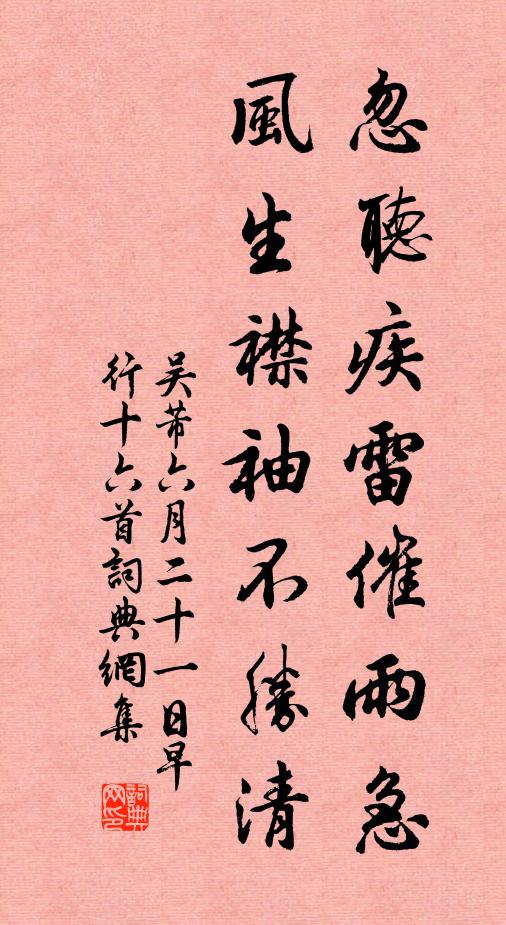 忽聽疾雷催雨急
風生襟袖不勝清
吳芾六月二十一日早
行十六首詞典網集
詞典
网印